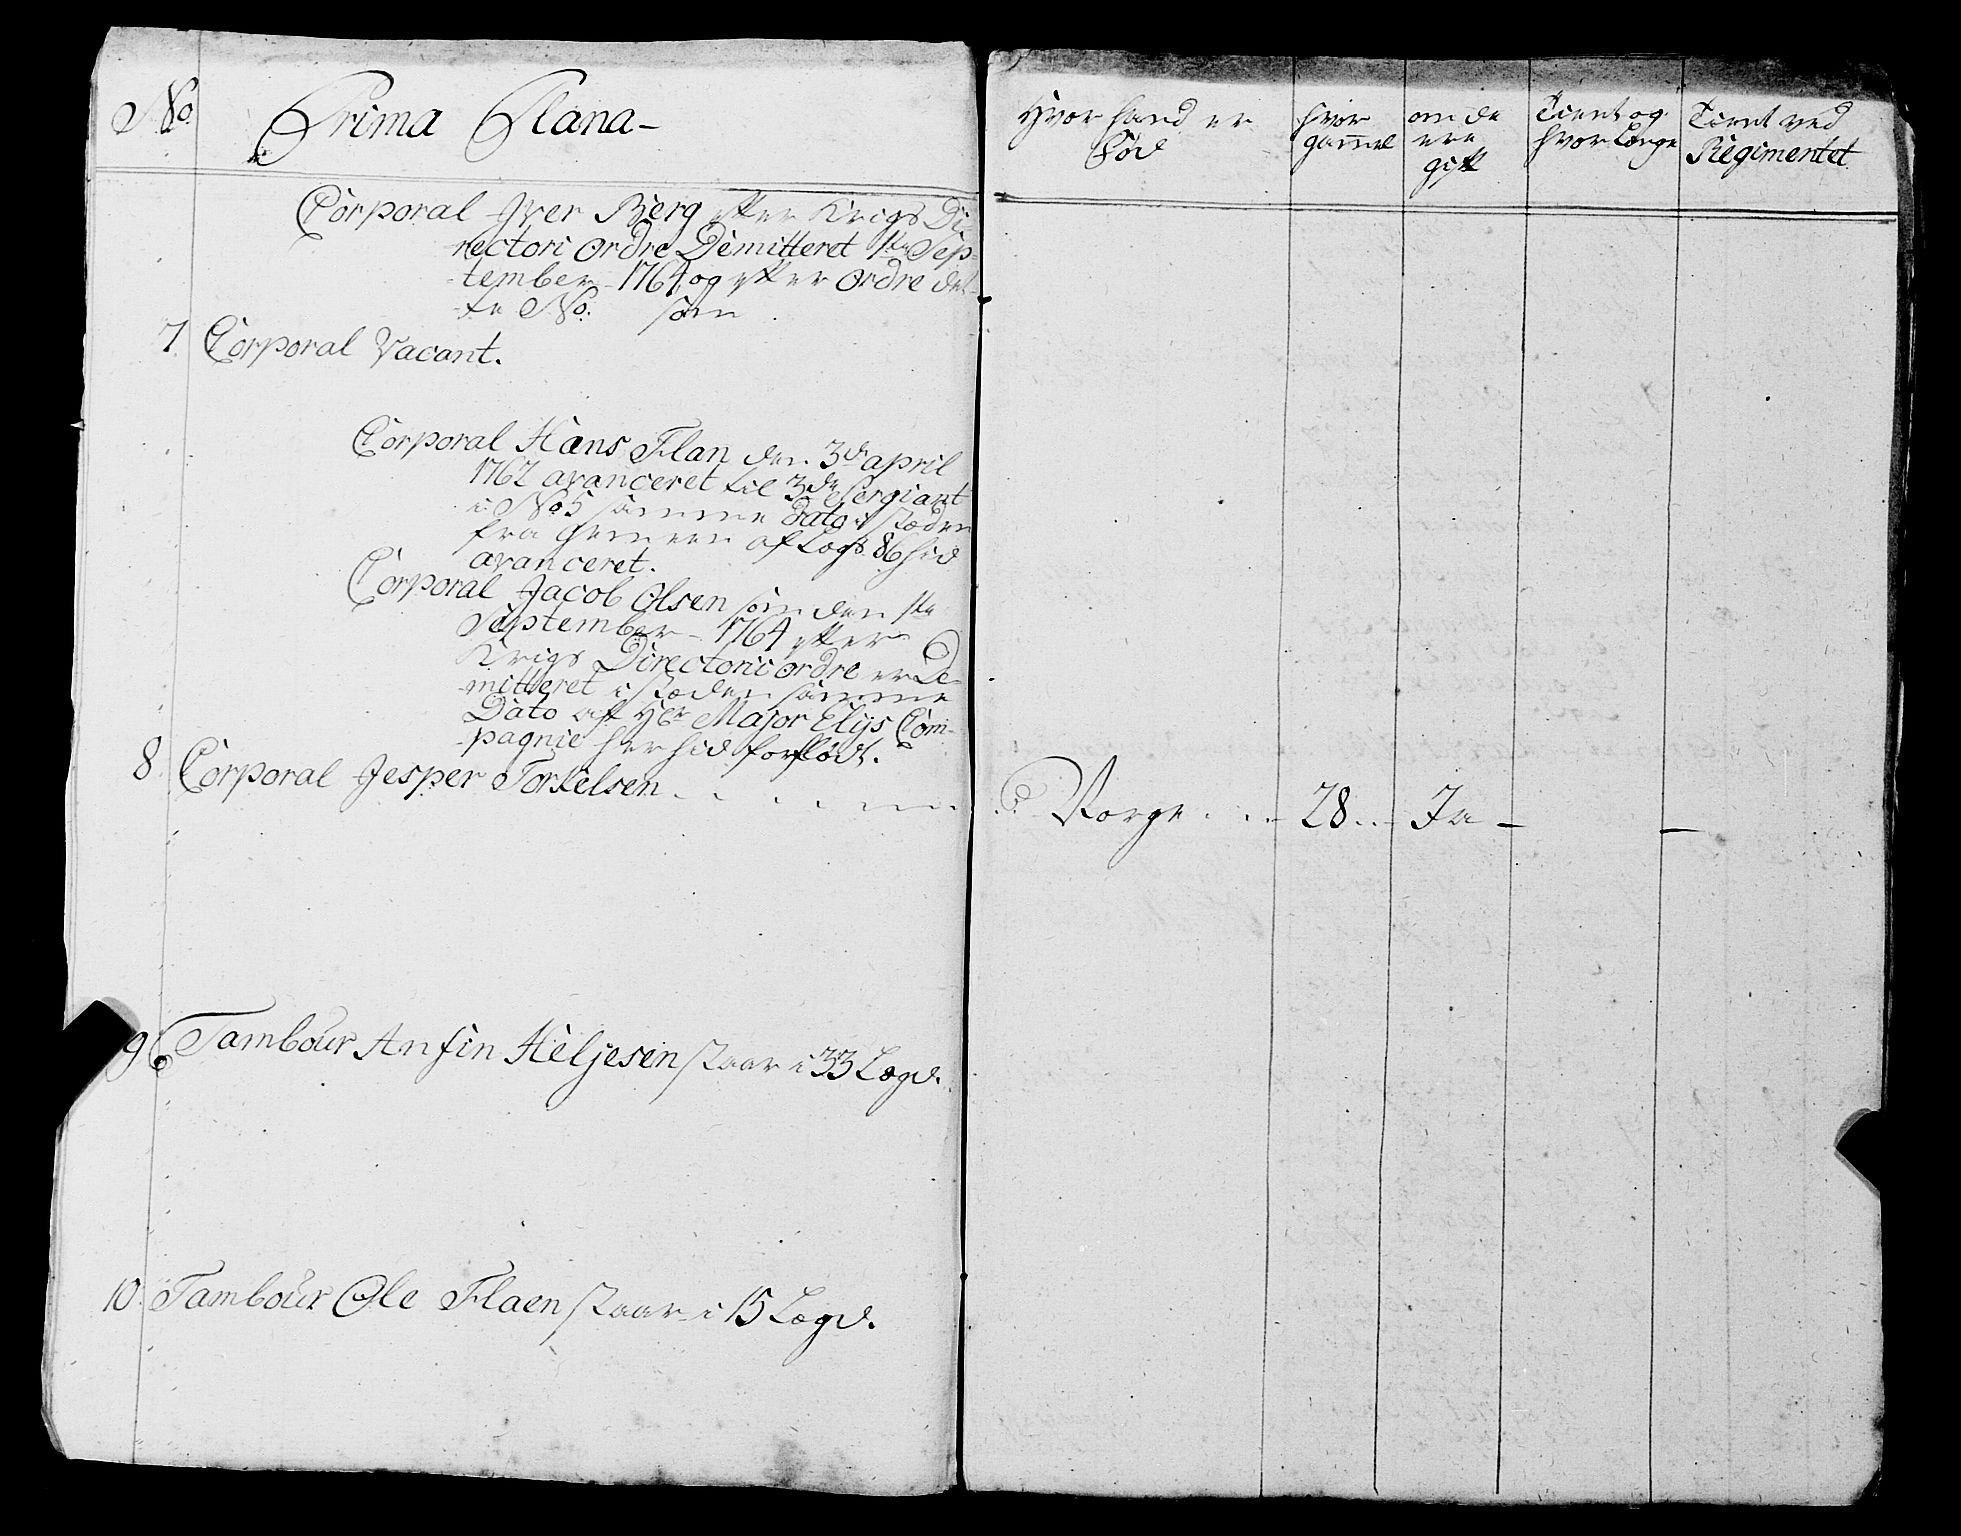 No. Prima Plana-
Corporal Iver Bierg efter Krigs Di-
rectori ordre Demitteret 1ste Sep-
-tember- 1764 og efter ordre det-
-te No. som
7. Corporal Vacant.
Corporal Hans Flan den 3de april
1762 avanceret til 3de Sergiant
i No 5 samme Dato i stæden
fra gemeen af Lægd 86 hid
avanceret.
Corporal Jacob Olsen som den 1ste
September- 1764 efter
Krigs Directorii ordre er De-
mitteret i stæden samme
Dato aft Hr Major Elys Com-
-pagnie her hid forflødt.
8. Corporal Jesper Torkelsen
9 Tambour Anfin Heljesen staar i 33 Lægd.
10. Tambour Ole Flaen staar i 15 Lægd.
Hvor hand er
Fød
hvor
gammel
om de
ere
gift
Tient og
hvor længe
Tient ved
Regimentet
Norge 28 Ja -